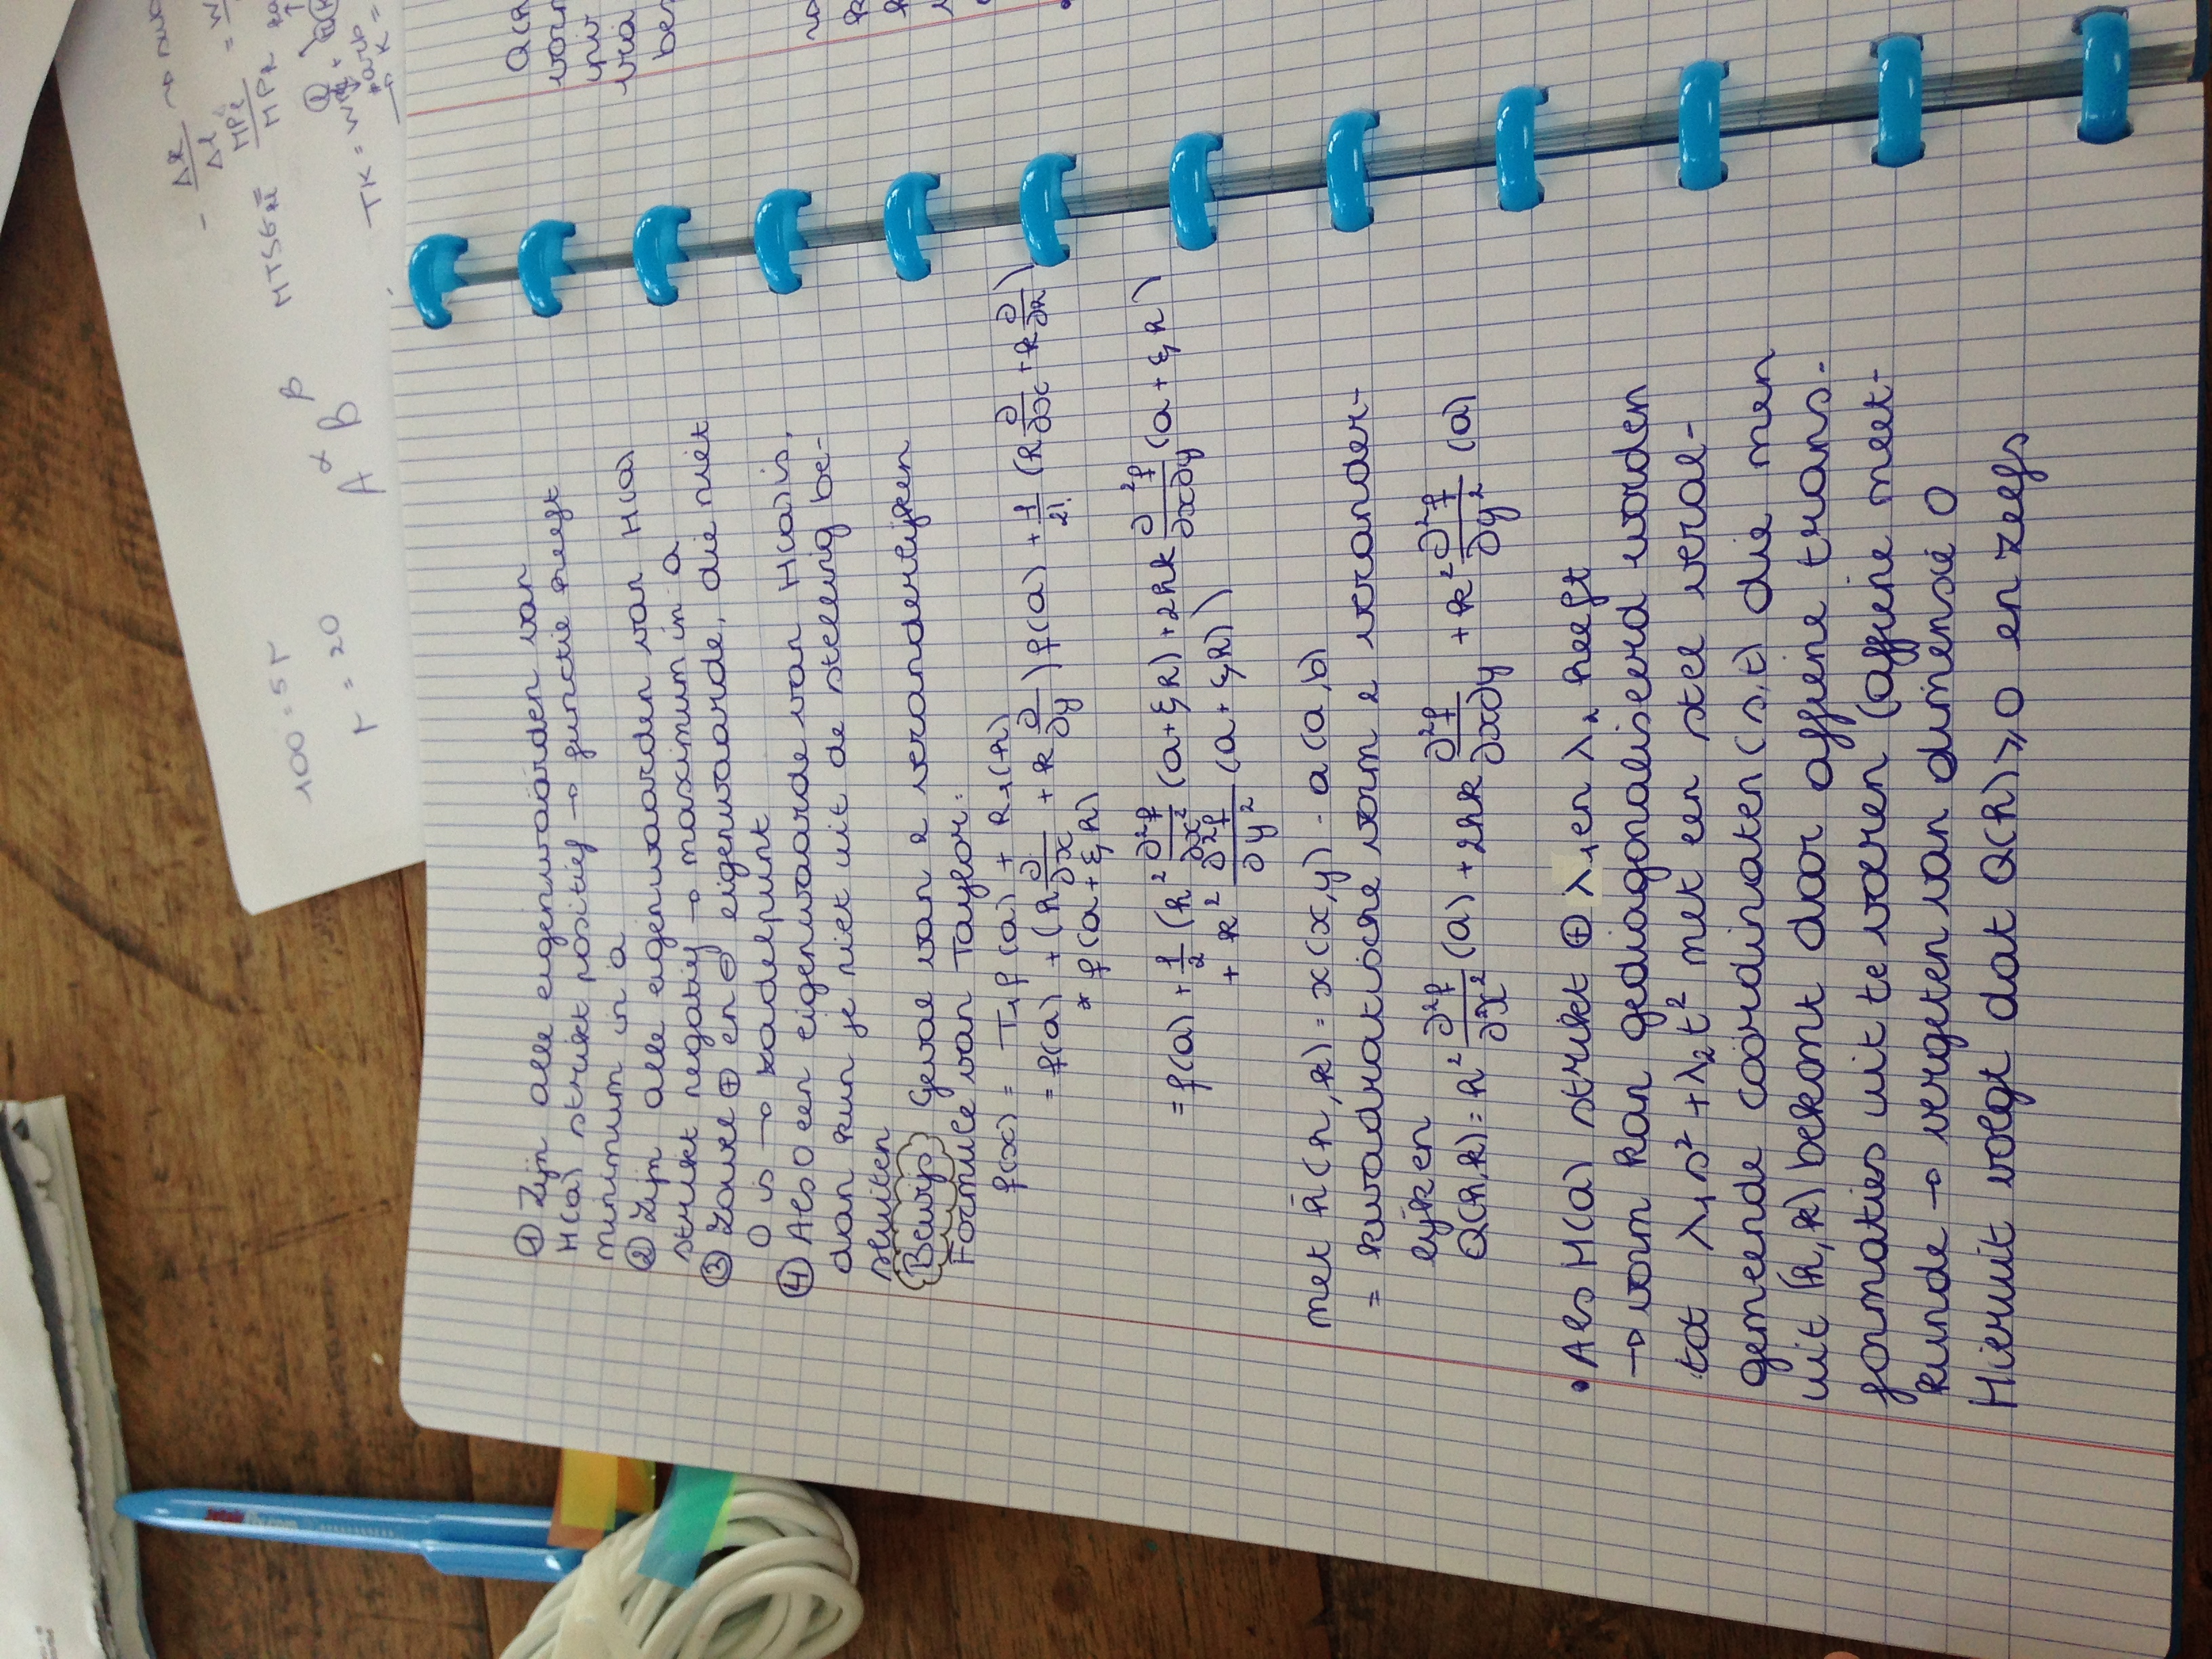 ① Zijn alle eigenwaarden van
H(a) strikt positief → functie heeft
minimum in a
② Zijn alle eigenwaarden van H(a)
strikt negatief → maximum in a
③ Zowel ⊕ en ⊖ eigenwaarde, die niet
0 is → zadelpunt
④ Als 0 een eigenwaarde van H(a) is,
dan kun je niet uit de stelling be-
sluiten
Bewijs Geval van 2 veranderlijken
Formule van Taylor:
f(x) = T₁f(a) + R₁(h)
= f(a) + (h ∂/∂x + k ∂/∂y) f(a) + 1/2! (h ∂/∂x + k ∂/∂x)
* f(a+ξh)
= f(a) + 1/2 (h² ∂²f/∂x² (a+ξh) + 2hk ∂²f/∂x∂y (a+ξh)
+ k² ∂²f/∂y² (a+ξh))
met h̄(h,k) = x(x,y) - a(a,b)
= kwadratische vorm 2 verander-
lijken
Q(h,k) = h² ∂²f/∂x² (a) + 2hk ∂²f/∂x∂y + k² ∂²f/∂y² (a)
• Als H(a) strikt ⊕ λ₁ en λ₂ heeft
→ vorm kan gediagonaliseerd worden
tot λ₁s² + λ₂t² met een stel veral-
gemeende coördinaten (s,t) die men
uit (h,k) bekomt door affiene trans-
formaties uit te voeren (affiene meet-
kunde → vergeten van dimensie 0
Hieruit volgt dat Q(h) ≥ 0 en zelfs
100 = 5r
r = 20
A^α B^β
TK =
Q(h
vorm
via